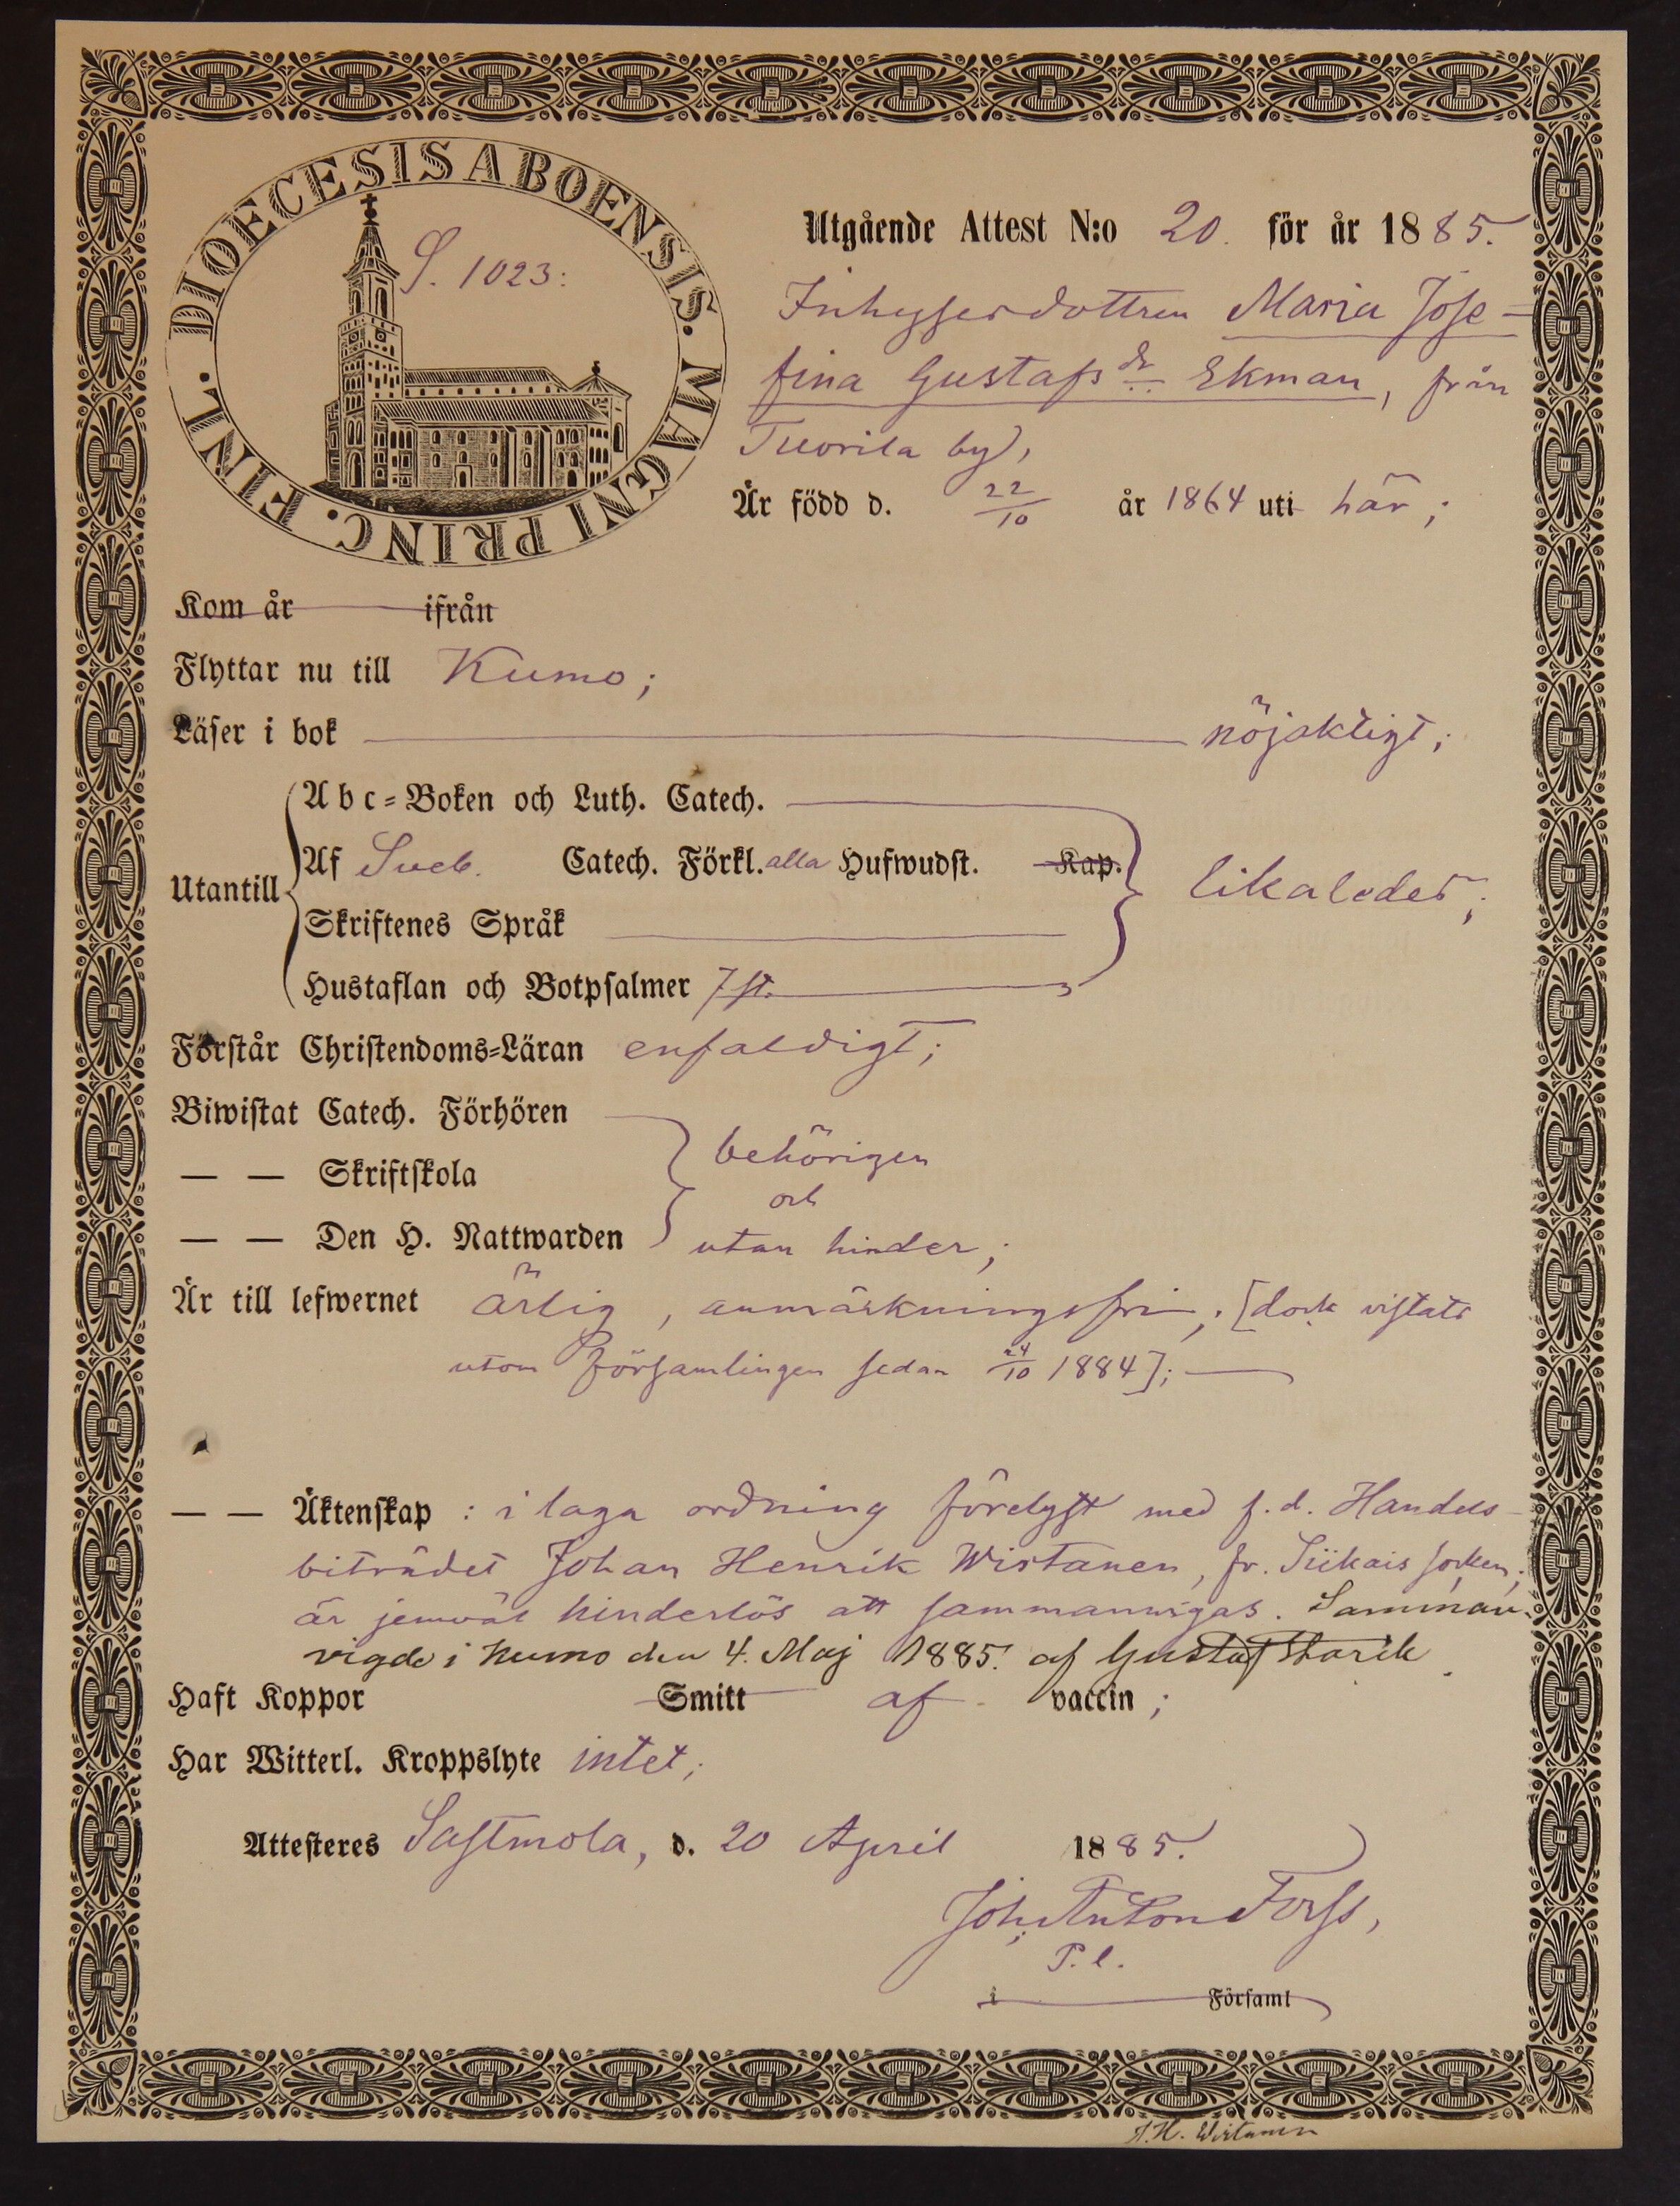 DIOECESIS ABOENSIS. MAGNI PRINC. FINL.
S. 1023:
Utgående Attest N:o 20. för år 1885.
Inhysesdottren Maria Jose-
fina Gustafsdr Ekman, från
Tuorila by,
Är född d. 22/10 år 1864 uti här;
Kom år ifrån
Flyttar nu till Kumo;
Läser i bok nöjaktigt;
Abc-Boken och Luth. Catech.
Af Sveb. Catech. Förkl. alla Hufwudst. Kap.
Utantill likaledes;
Skriftenes Språk
Hustaflan och Botpsalmer 7 st.
Förstår Christendoms-Läran enfaldigt;
Biwistat Catech. Förhören
— — Skriftskola behörigen
och
— — Den H. Nattwarden utan hinder;
Är till lefwernet ärlig, anmärkningsfri, [dock vistats
utom församlingen sedan 24/10 1884];
— — Äktenskap : i laga ordning förelyst med f.d. Handels-
biträdet Johan Henrik Wirtanen, fr. Siikais socken;
är jemväl hinderlös att sammanvigas. Samman-
vigde i Kumo den 4. Maj 1885. af Gustaf
Haft Koppor Smitt af vaccin;
Har Witterl. Kroppslyte intet;
Attesteres Sastmola, d. 20 April 1885.
Joh. Anton Forss,
P. l.
i Församl
J.H. Wirtanen